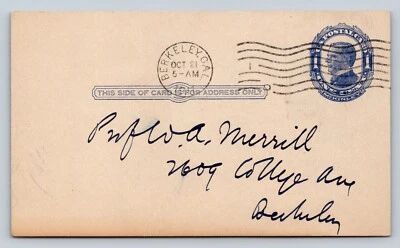 BERKELEY, CAL.
OCT 21
5-AM
U.S. POSTAL CARD
THIS SIDE OF CARD IS FOR ADDRESS ONLY
Prof W. A. Merrill
2609 College Ave
Berkeley